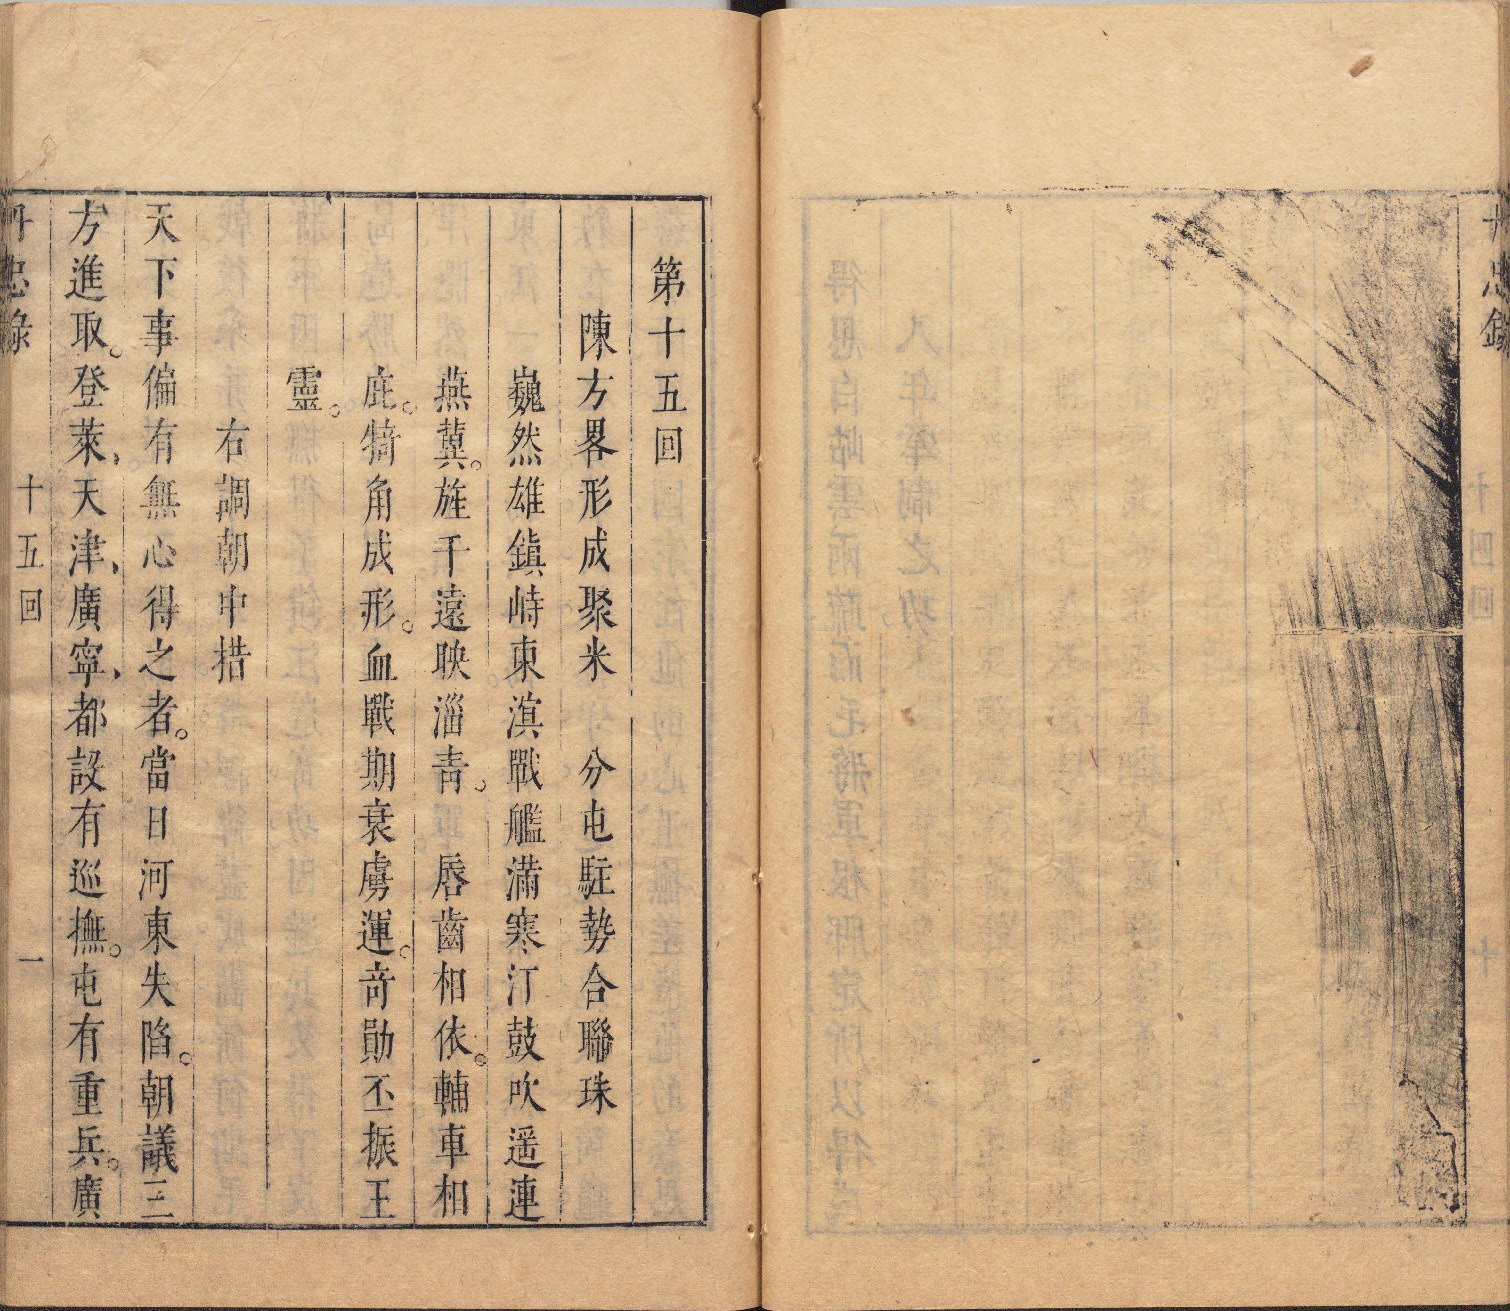 丹忠錄
十四回
十
第十五回
陳方畧形成聚米　分屯駐勢合聯珠
巍然雄鎮峙東溟戰艦滿寒汀鼓吹遥連
燕冀。旌干遠映淄青。唇齒相依。輔車相
庇。犄角成形。血戰期衰虜運。竒勛丕振王
靈。
右調朝中措
天下事偏有無心得之者。當日河東失陷。朝議三
方進取。登萊、天津、廣寧、都設有巡撫。屯有重兵。廣
丹忠錄
十五回
一